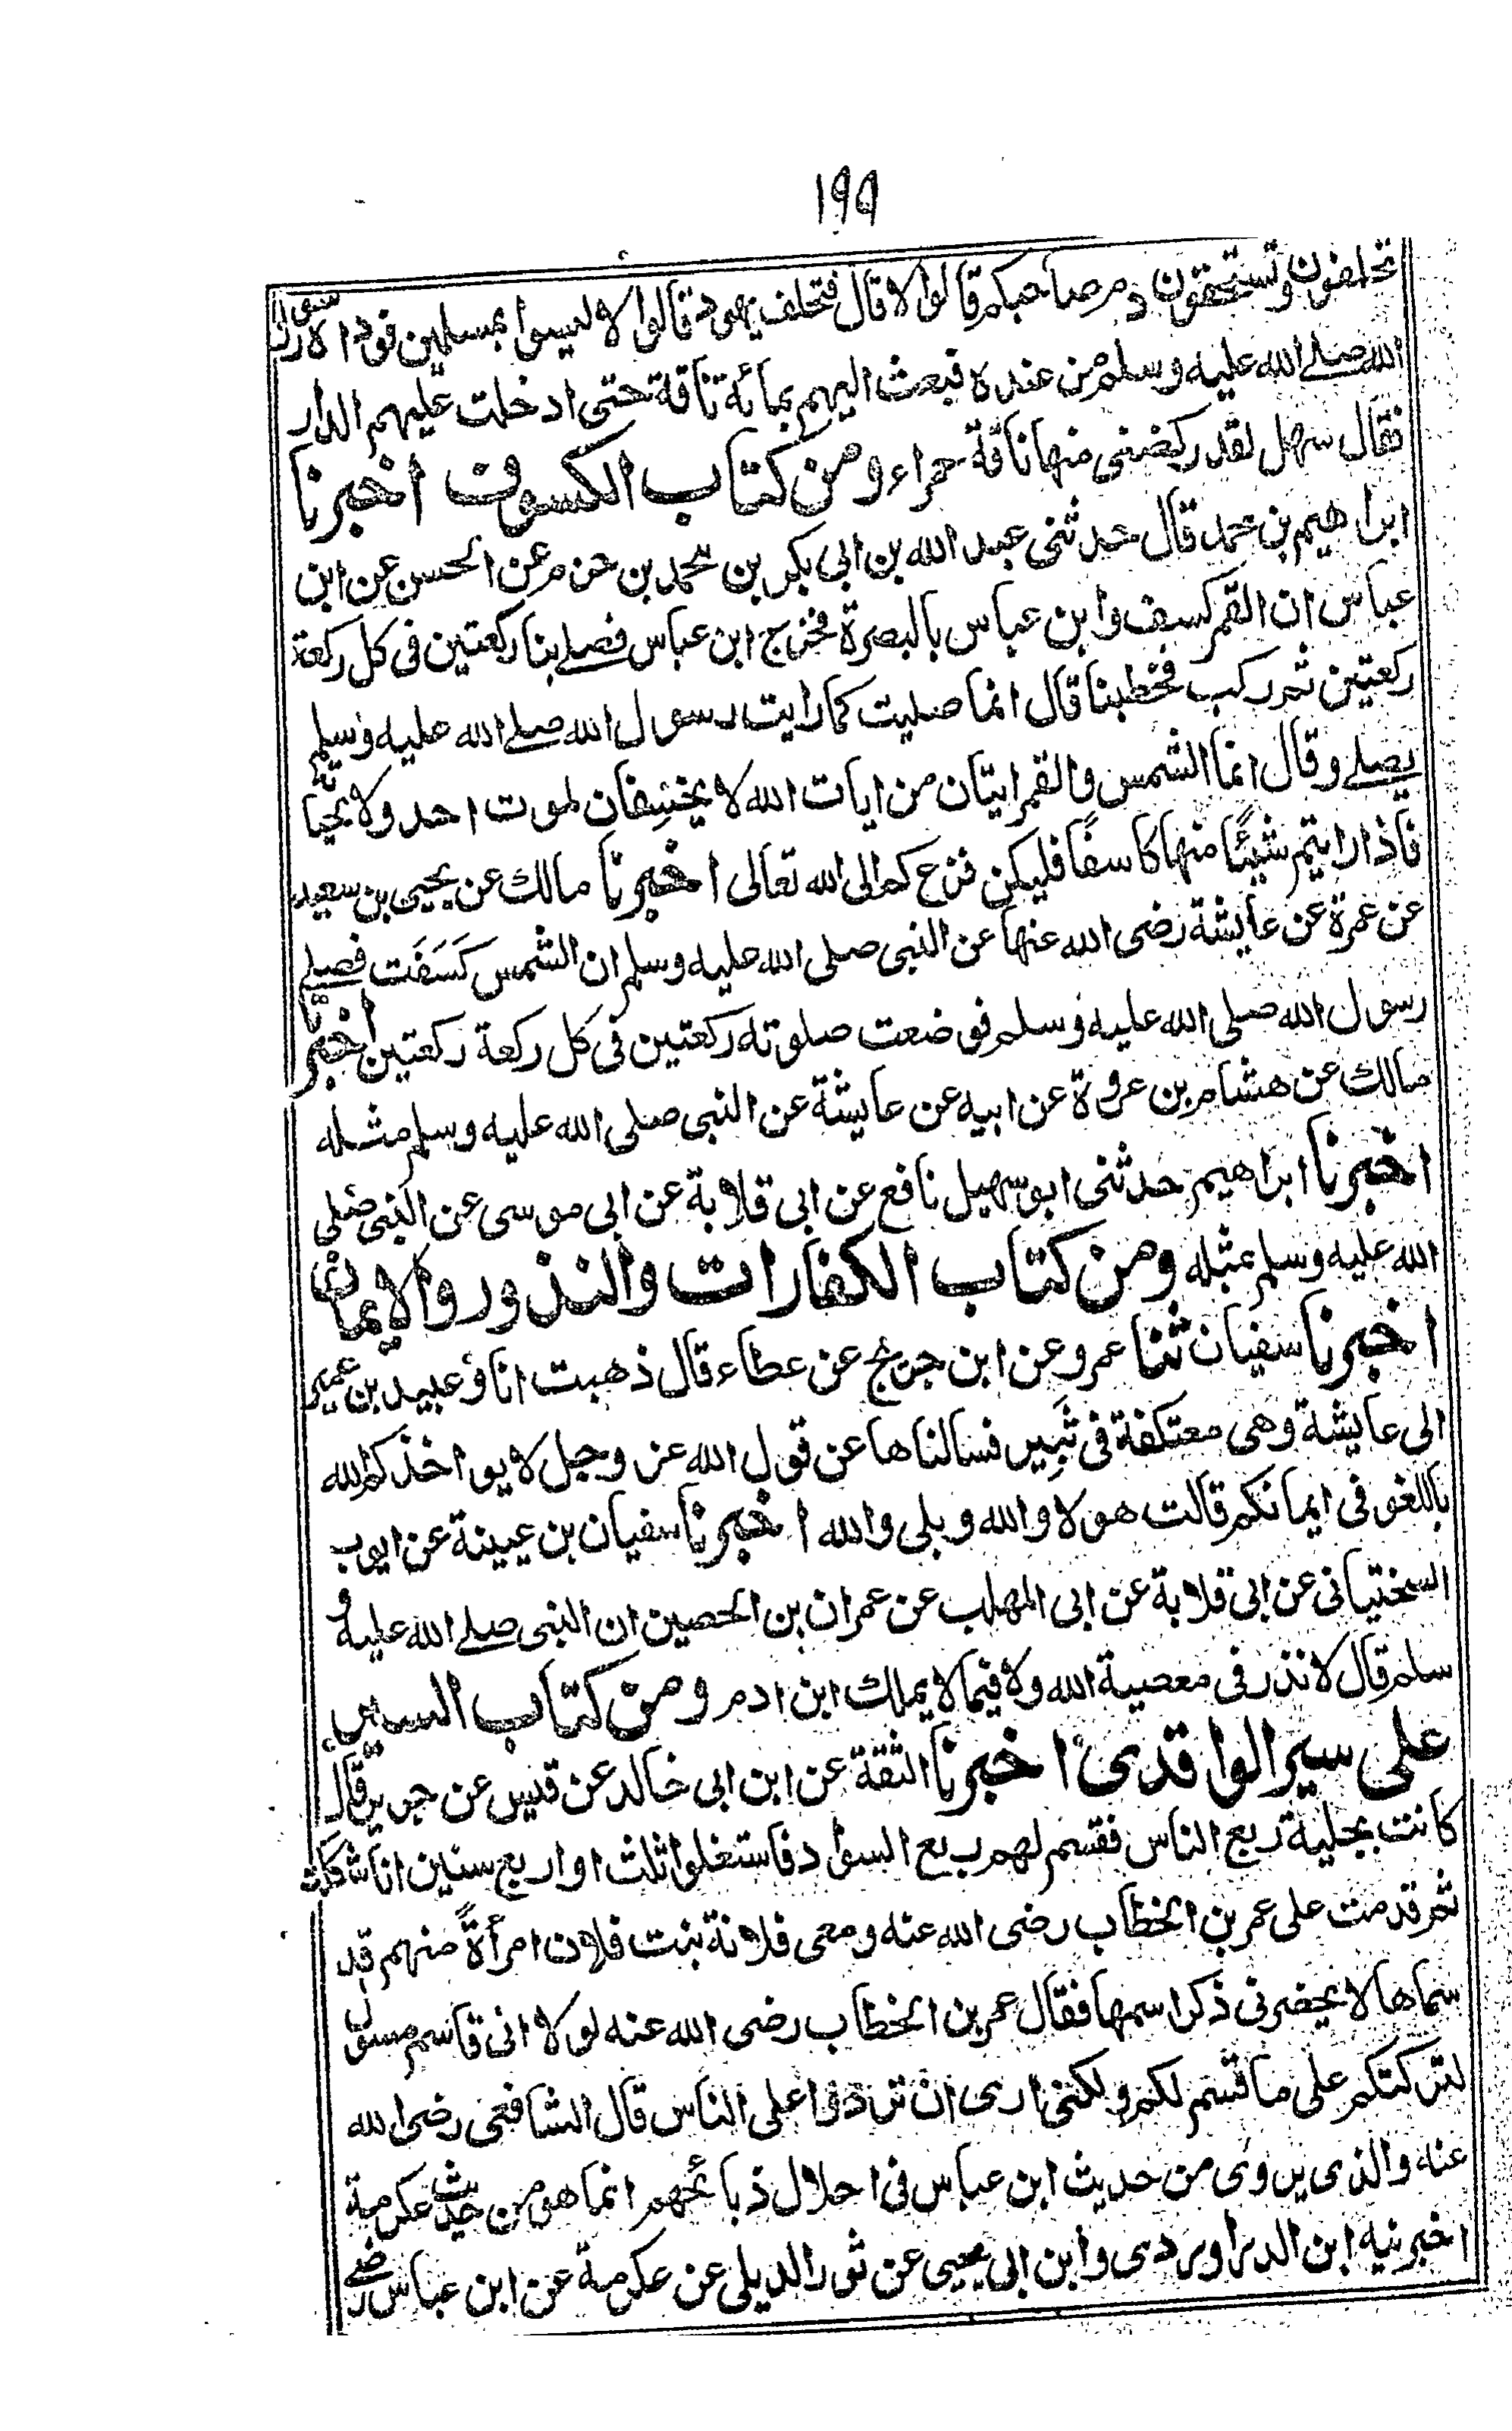 ١٩٩
تحلفون وتستحقون دم صاحبكم قالوا لا قال فتحلف يهود قالوا لا ليسوا بمسلمين فوداه رسول
الله صلے الله عليه وسلم من عنده فبعث اليهم بمائة ناقة حتى ادخلت عليهم الدار
فقال سهل لقد ركضنى منها ناقة حمراء ومن كتاب الكسوف اخبرنا
ابراهيم بن محمد قال حدثنى عبد الله بن ابى بكر بن محمد بن حزم عن الحسن عن ابن
عباس ان القمر كسف وابن عباس بالبصرة فخرج ابن عباس فصلے بنا ركعتين فى كل ركعة
ركعتين ثم ركب فخطبنا قال انما صليت كما رايت رسول الله صلے الله عليه وسلم
يصلے وقال انما الشمس والقمر ايتان من ايات الله لا يخسفان لموت احد ولا لحياته
فاذا رايتم شيئًا منها كاسفًا فليكن فزعكم الى الله تعالى اخبرنا مالك عن يحيى بن سعيد
عن عمرة عن عايشة رضى الله عنها عن النبى صلى الله عليه وسلم ان الشمس كَسَفَت فصلے
رسول الله صلى الله عليه وسلم فوضعت صلوته ركعتين فى كل ركعة ركعتين اخبرنا
مالك عن هشام بن عروة عن ابيه عن عايشة عن النبى صلى الله عليه وسلم مثله
اخبرنا ابراهيم حدثنى ابو سهيل نافع عن ابى قلابة عن ابى موسى عن النبى صلى
الله عليه وسلم بمثله ومن كتاب الكفارات والنذور والايمان
اخبرنا سفيان ثنا عمرو عن ابن جريج عن عطاء قال ذهبت انا وعبيد بن عمير
الى عايشة وهى معتكفة فى ثبير فسالناها عن قول الله عز وجل لا يواخذكم الله
باللغو فى ايمانكم قالت هو لا والله وبلى والله اخبرنا سفيان بن عيينة عن ايوب
السختيانى عن ابى قلابة عن ابى المهلب عن عمران بن الحصين ان النبى صلے الله عليه و
سلم قال لا نذر فى معصية الله ولا فيما لا يملك ابن ادم ومن كتاب السير
على سير الواقدى اخبرنا الثقة عن ابن ابى خالد عن قيس عن جرير قال
كانت بجلية ربع الناس فقسم لهم ربع السواد فاستغلوا ثلث او اربع سنين انا شككت
ثم قدمت على عمر بن الخطاب رضى الله عنه ومعى فلانة بنت فلان امرأةً منهم قد
سماها لا يحضرنى ذكر اسمها فقال عمر بن الخطاب رضى الله عنه لو لا انى قاسم مسئول
لتركتكم على ما قسم لكم ولكنى ارى ان تردوا على الناس قال الشافعى رضى الله
عنه والذى يروى من حديث ابن عباس فى احلال ذبائحهم انما هو من حديث عكرمة
اخبرنيه ابن الدراوردى وابن ابى يحيى عن ثور الديلى عن عكرمة عن ابن عباس رضے